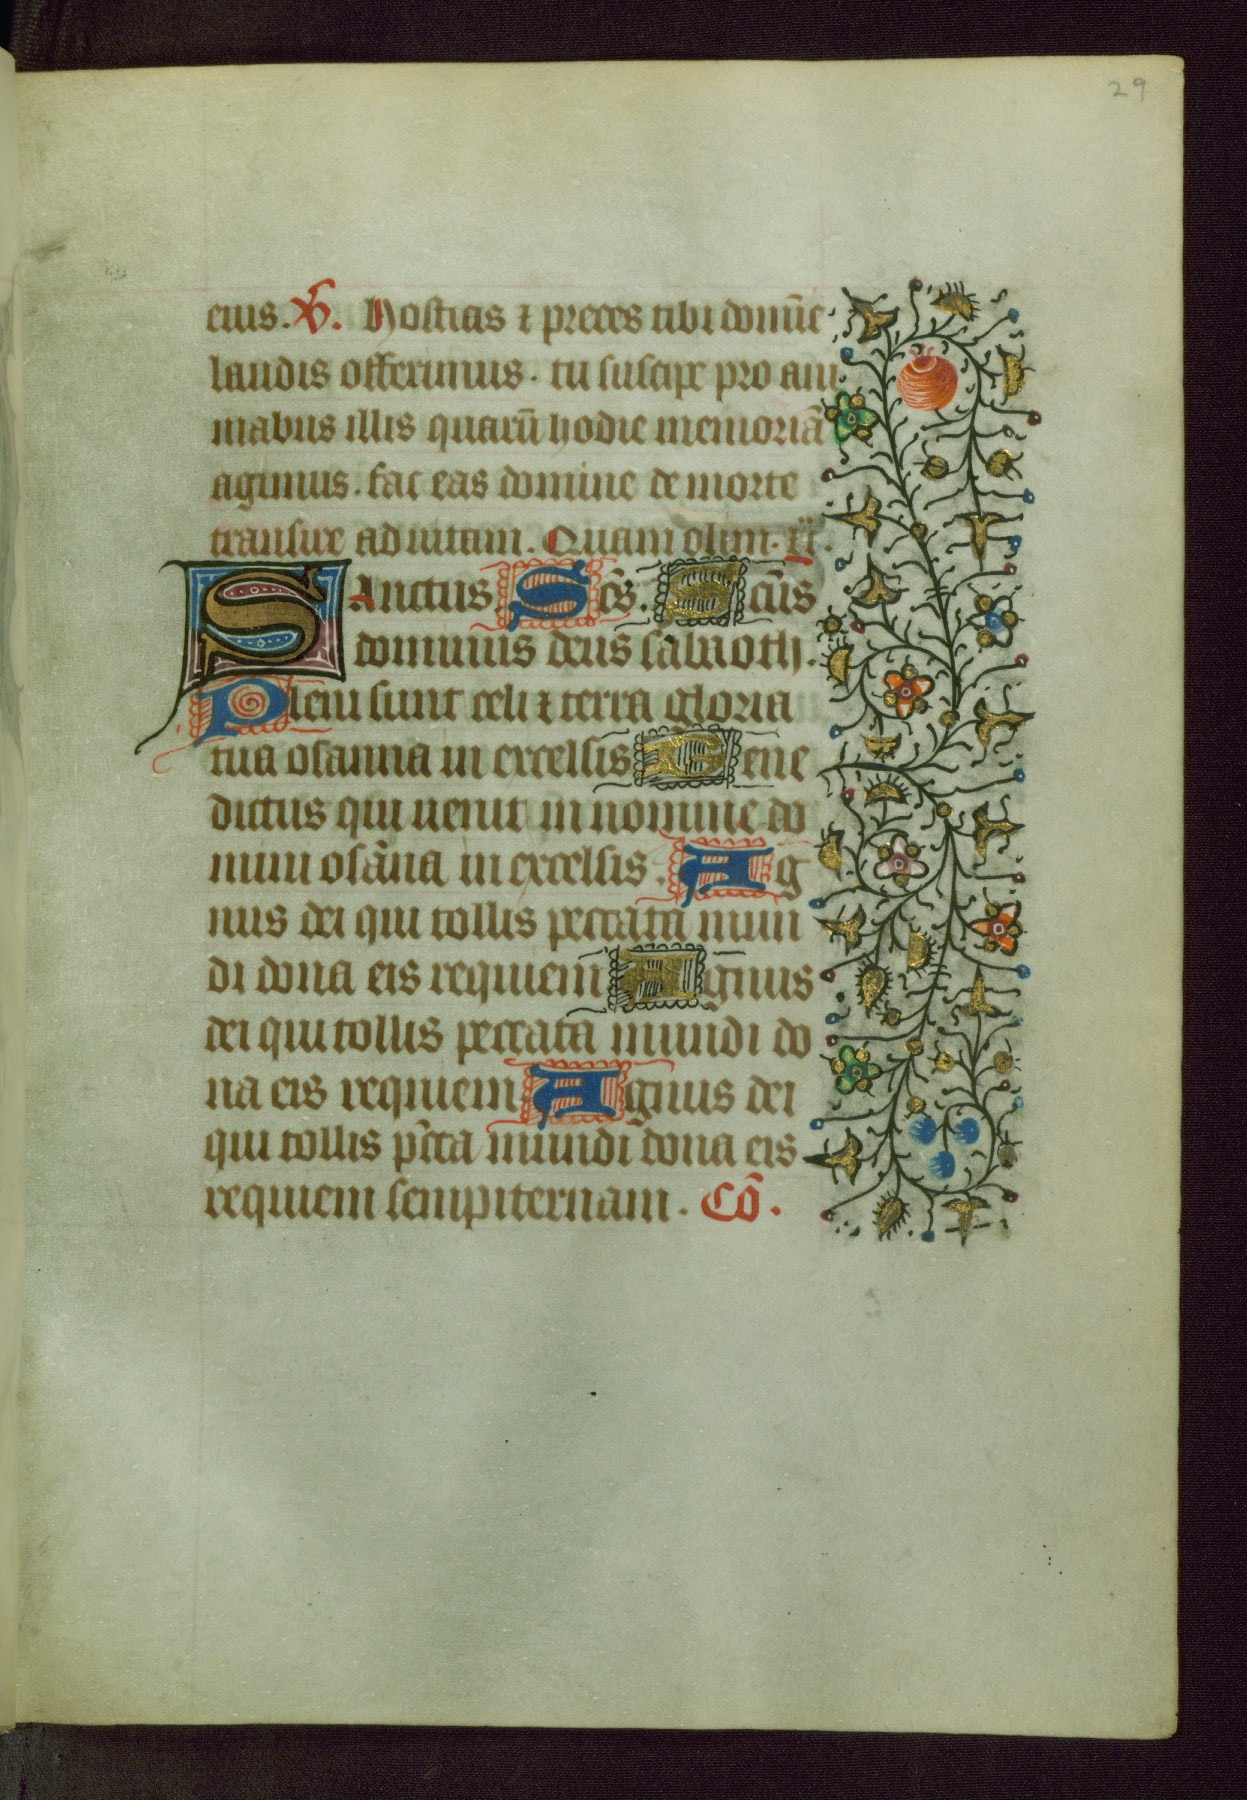 29
eius. V̄. Hostias ⁊ preces tibi domīe
laudis offerimus. tu suscipe pro ani
mabus illis quarū hodie memoriā
agimus. fac eas domine de morte
transire ad uitam. Quam olim.
Sanctus Sc̄s. Sc̄us
dominus deus sabaoth.
Pleni sunt celi ⁊ terra gloria
tua osanna in excelsis Bene
dictus qui uenit in nomine do
mini osāna in excelsis. Ag
nus dei qui tollis peccata mun
di dona eis requiem Agnus
dei qui tollis peccata mundi do
na eis requiem Agnus dei
qui tollis pcc̄a mundi dona eis
requiem sempiternam. Cō.